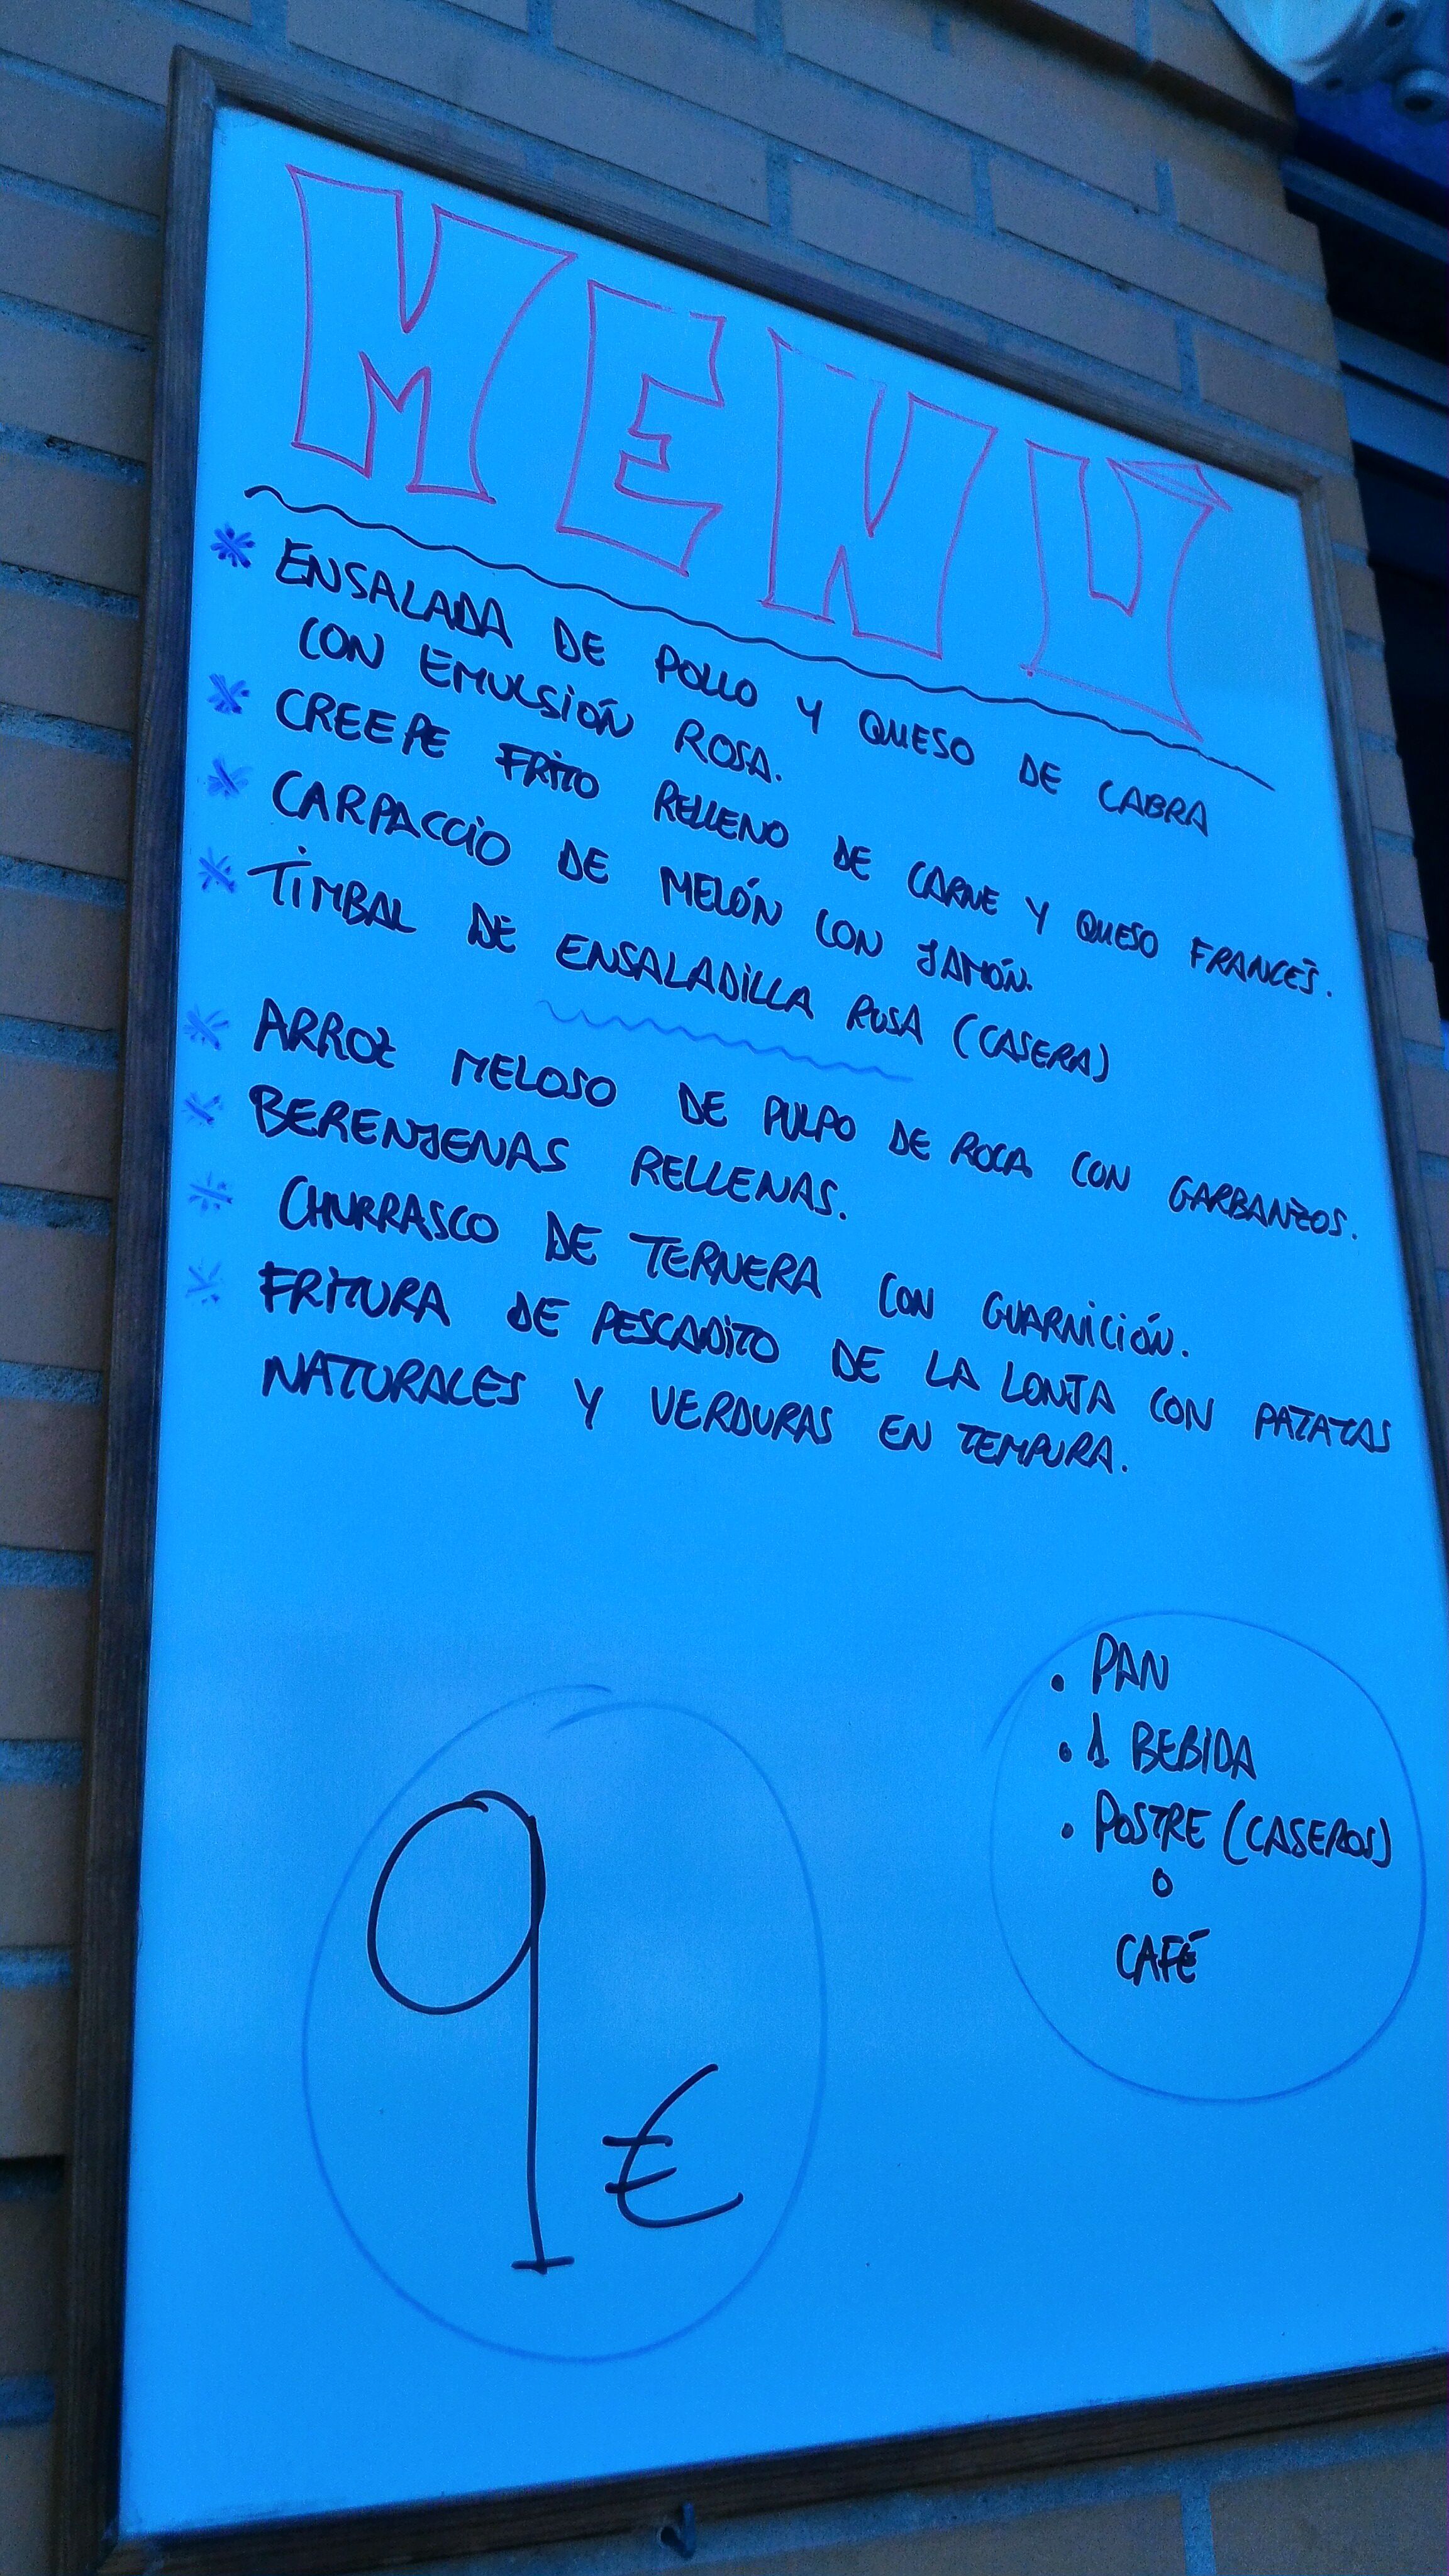 MENÚ
* ENSALADA DE POLLO Y QUESO DE CABRA
CON EMULSIÓN ROSA.
* CREEPE FRITO RELLENO DE CARNE Y QUESO FRANCÉS.
* CARPACCIO DE MELÓN CON JAMÓN.
* TIMBAL DE ENSALADILLA RUSA (CASERA)
* ARROZ MELOSO DE PULPO DE ROCA CON GARBANZOS.
* BERENJENAS RELLENAS.
* CHURRASCO DE TERNERA CON GUARNICIÓN.
* FRITURA DE PESCADITO DE LA LONJA CON PATATAS
NATURALES Y VERDURAS EN TEMPURA.
9 €
• PAN
• 1 BEBIDA
• POSTRE (CASEROS)
O
CAFÉ